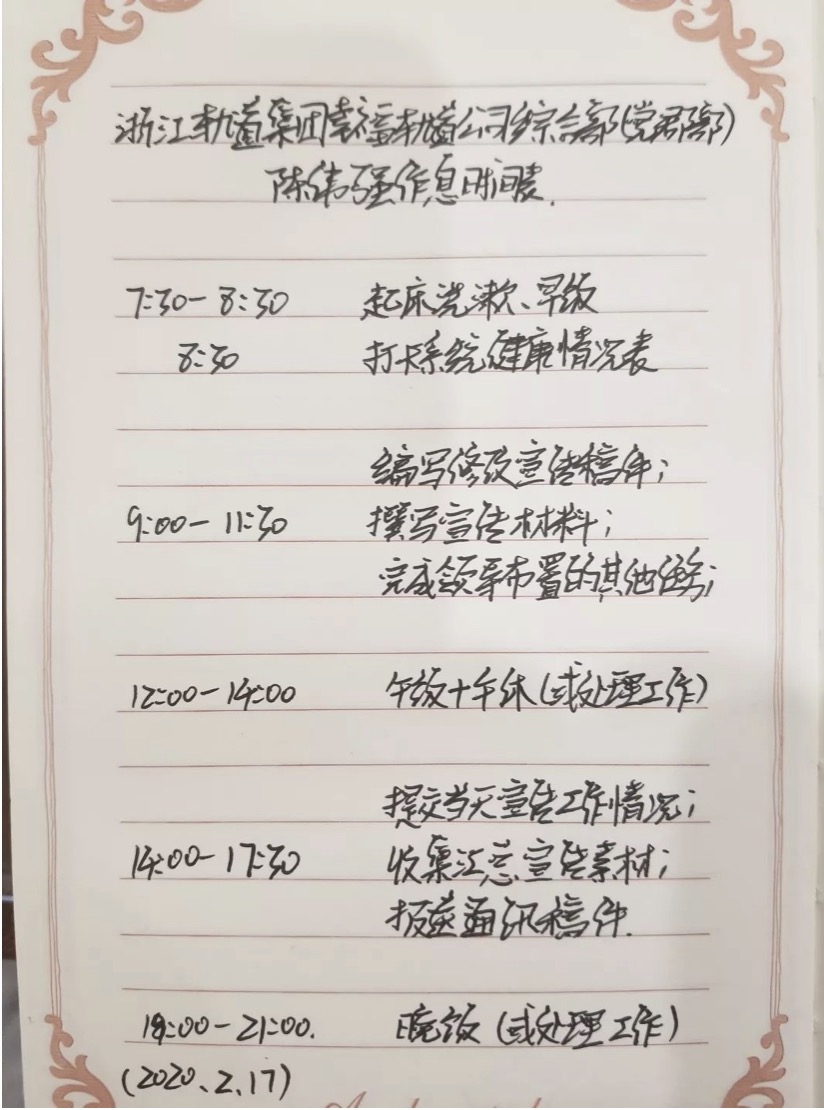 浙江轨道集团幸福轨道公司综合部(党群部)
陈伟强作息时间表.
7:30-8:30 起床洗漱、早饭
8:30 打卡系统健康情况表
编写修改宣传稿件;
9:00-11:30 撰写宣传材料;
完成领导布置的其他任务;
12:00-14:00 午饭+午休(或处理工作)
提交当天宣传工作情况;
14:00-17:30 收集汇总宣传素材;
报送通讯稿件.
18:00-21:00. 晚饭(或处理工作)
(2020.2.17)